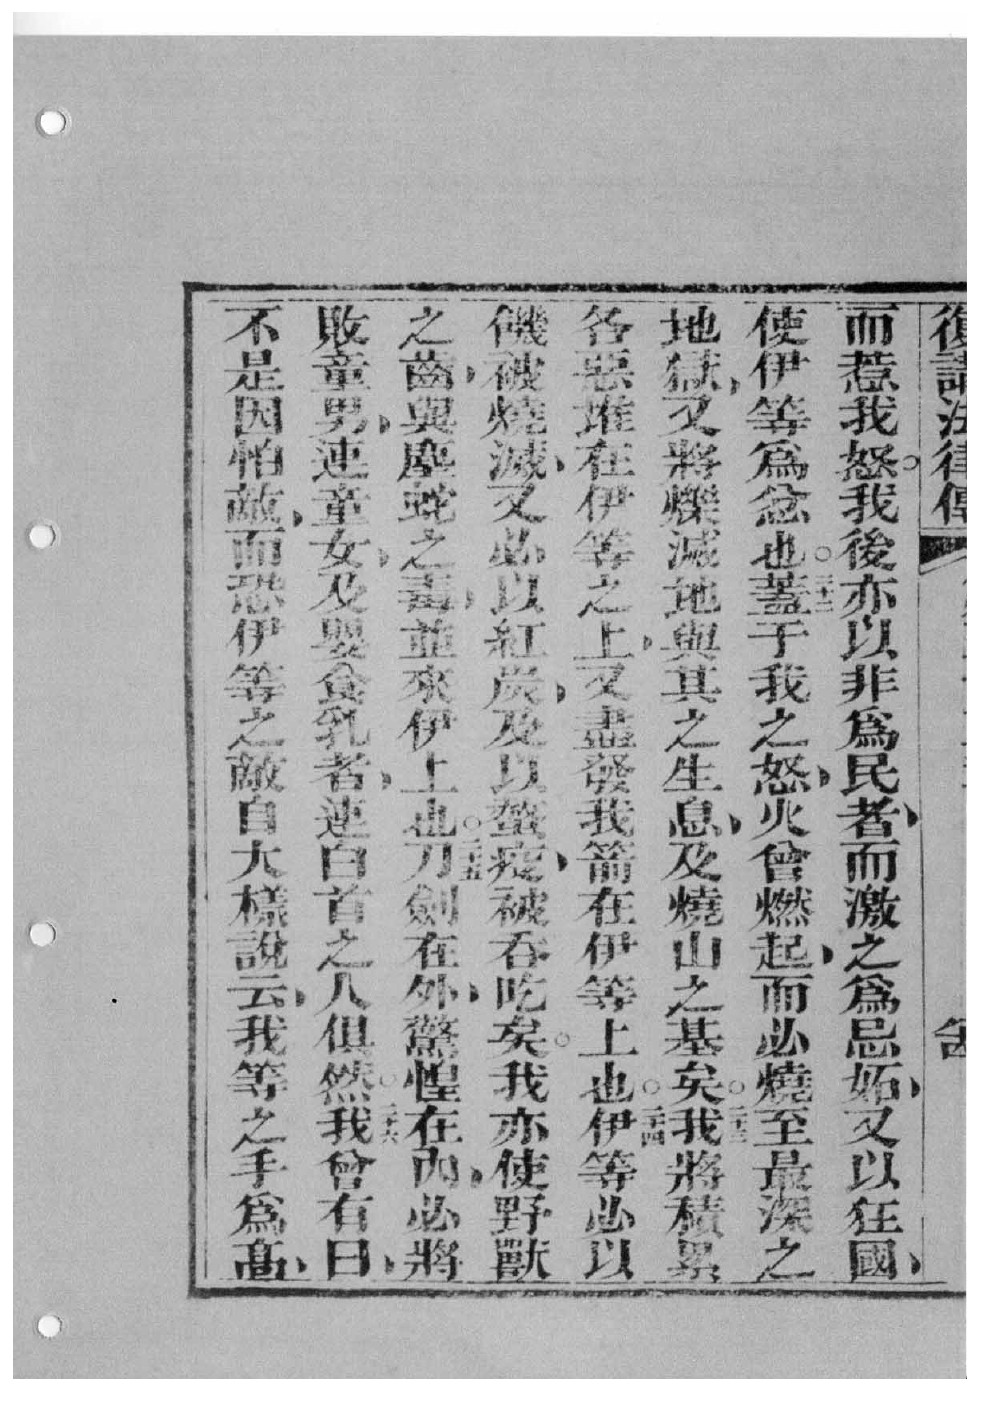 復講法律傳
而惹我怒。我後亦以非爲民者、而激之爲忌妬、又以狂國、
使伊等爲忿也。二十二蓋于我之怒、火曾燃起、而必燒至最深之
地獄、又將爍滅地與其之生息、及燒山之基矣。二十三我將積累
各惡堆在伊等之上、又盡發我箭在伊等上也。二十四伊等必以
饑被燒滅、又必以紅炭、及以螫疫、被吞吃矣。我亦使野獸
之齒、與塵蛇之毒、並來伊上也。二十五刀劍在外、驚惶在內、必將
敗童男、連童女、及嬰食乳者、連白首之人俱然。二十六我曾有曰、
不是因怕敵、而恐伊等之敵自大樣說云、我等之手爲高、